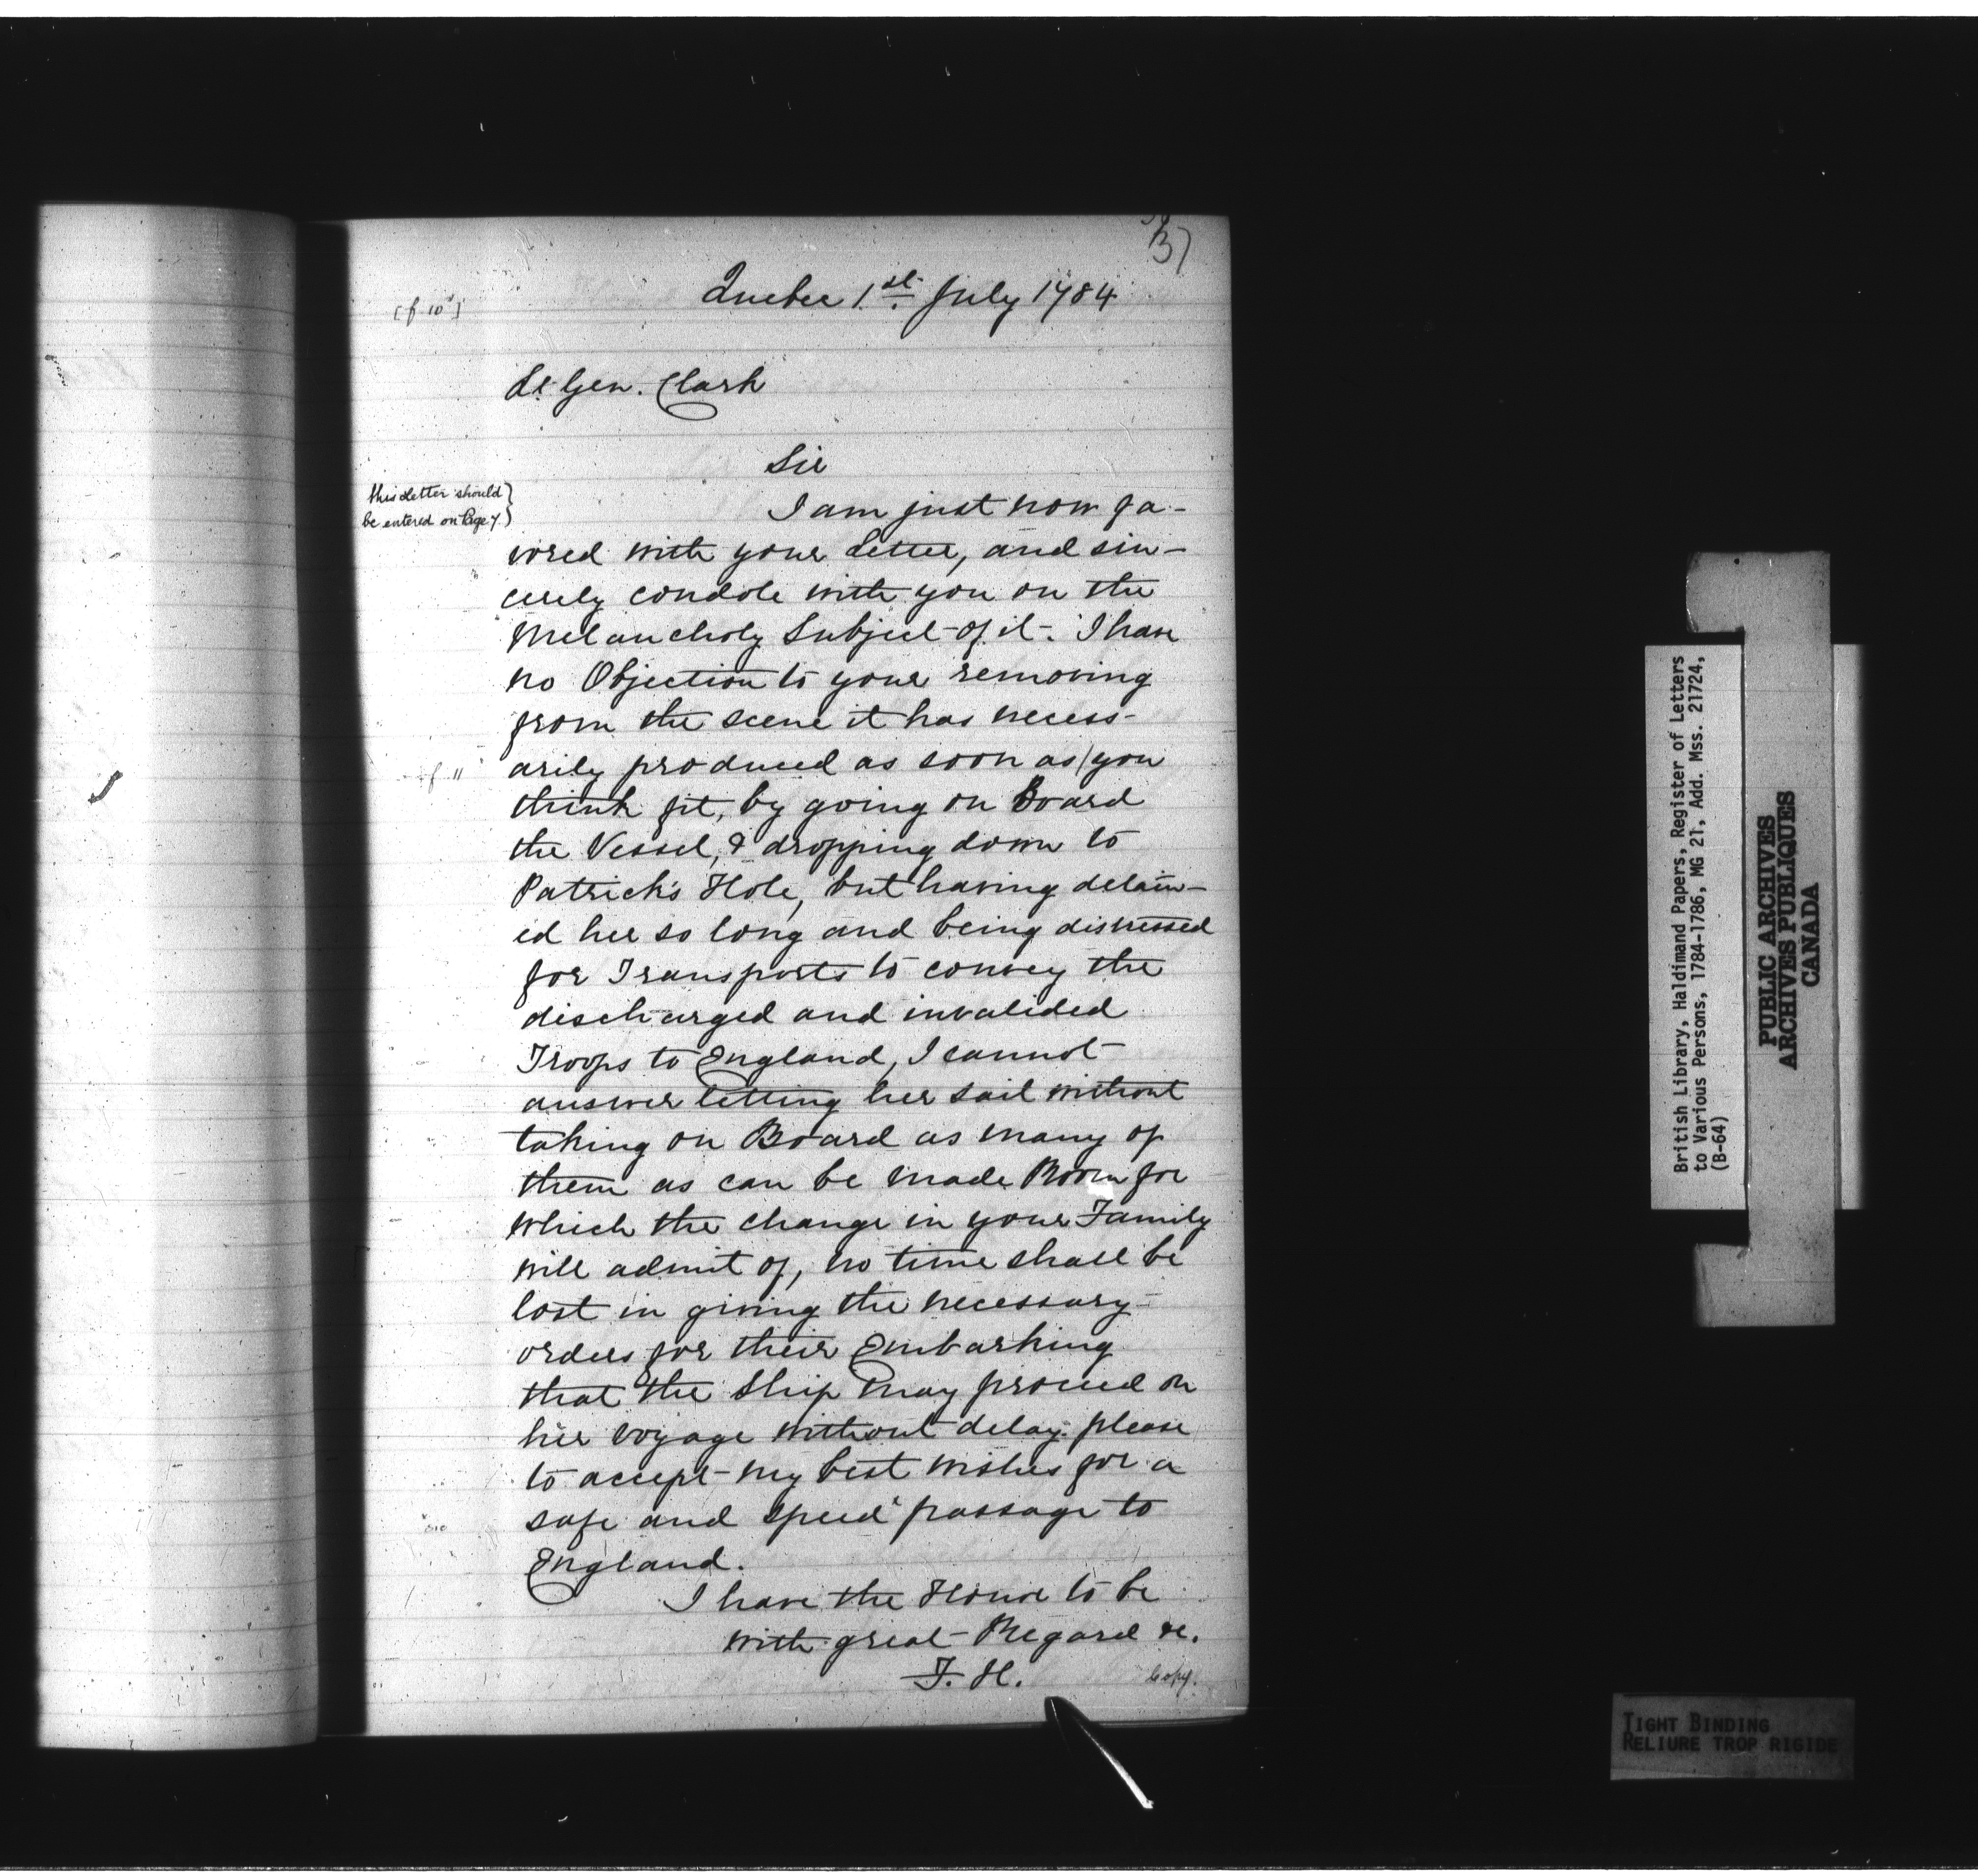 37
Quebec 1st. July 1784
[f 10]
Lt Gen. Clark
Sir
this Letter should
be entered on Page 7.
I am just now fa-
vored with your Letter, and sin-
cerely condole with you on the
Melancholy Subject of it. I have
no Objection to your removing
from the scene it has necess-
arily produced as soon as/you
f 11
think fit, by going on Board
the Vessel, & dropping down to
Patrick's Hole, but having detain-
ed her so long and being distressed
for Transports to convey the
discharged and invalided
Troops to England, I cannot
answer letting her sail without
taking on Board as many of
them as can be made Room for
which the change in your Family
will admit of, no time shall be
lost in giving the necessary
orders for their Embarking
that the Ship may proceed on
her voyage without delay. please
to accept my best wishes for a
safe and speed passage to
England.
I have the Honor to be
with great Regard &c.
F. H.
Copy.
British Library, Haldimand Papers, Register of Letters
to Various Persons, 1784-1786, MG 21, Add. Mss. 21724,
(B-64)
PUBLIC ARCHIVES
ARCHIVES PUBLIQUES
CANADA
TIGHT BINDING
RELIURE TROP RIGIDE